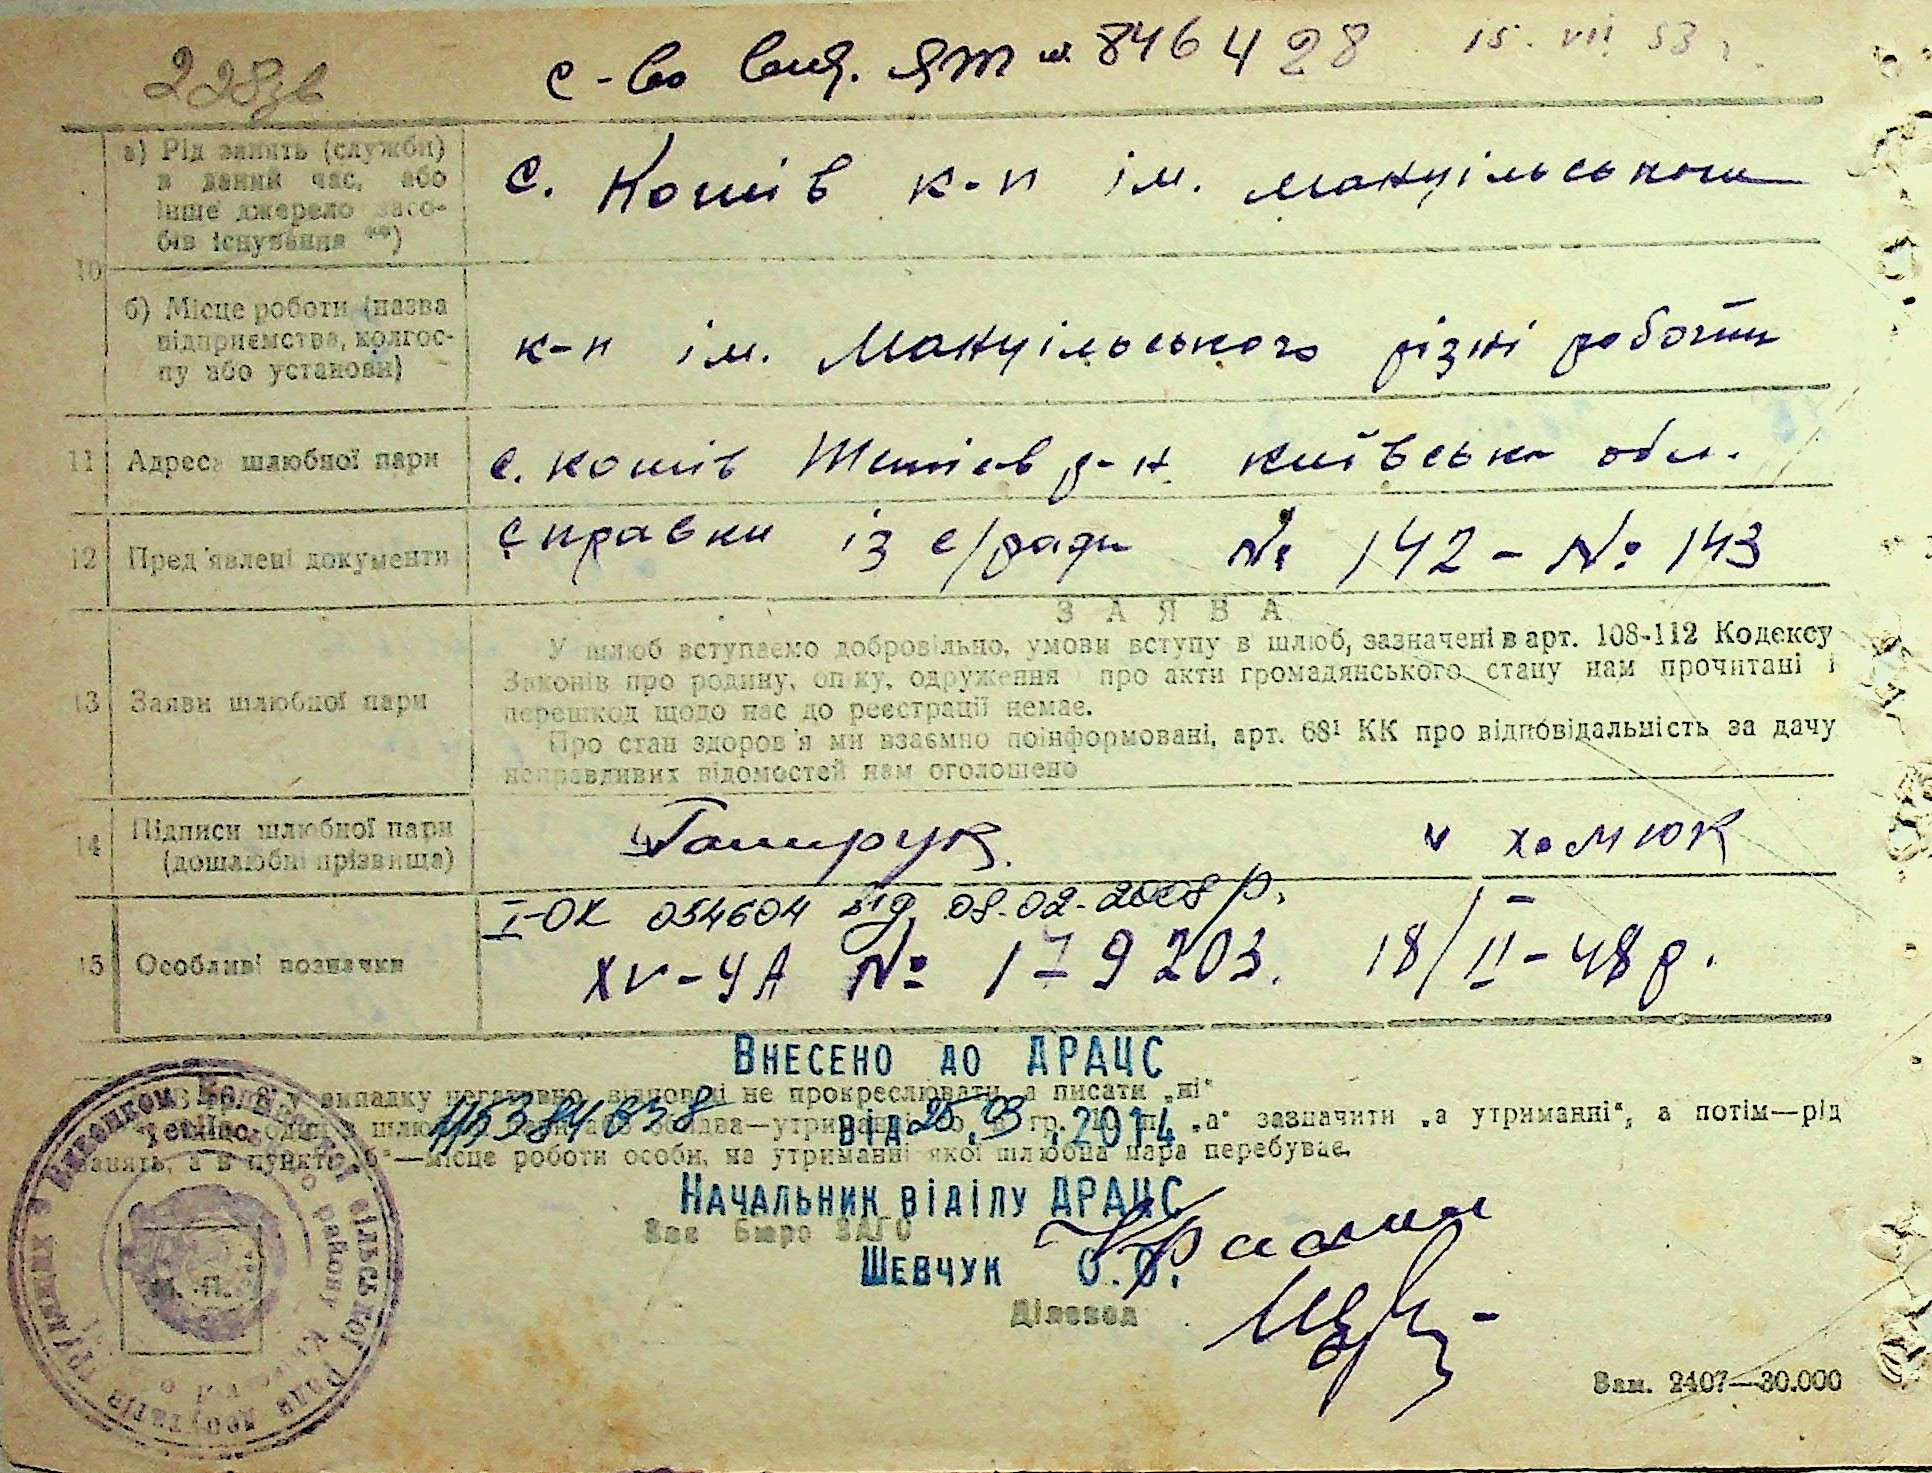 228зв
с-во вид. ЯТ № 846428 15. VII 53 г.
10
а) Рід занять (служби)
в даний час, або
інше джерело засо-
бів існування **)
с. Кошів к-п ім. Мануільського
б) Місце роботи (назва
підприємства, колгос-
пу або установи)
к-п ім. Мануільського різні роботи
11 Адреса шлюбної пари
с. Кошів Тетіїв р-н Київська обл.
12 Пред'явлені документи
Справки із с/ради № 142 - № 143
13 Заяви шлюбної пари
ЗАЯВА
У шлюб вступаємо добровільно, умови вступу в шлюб, зазначені в арт. 108-112 Кодексу
Законів про родину, опіку, одруження і про акти громадянського стану нам прочитані і
перешкод щодо нас до реєстрації немає.
Про стан здоров'я ми взаємно поінформовані, арт. 68¹ КК про відповідальність за дачу
неправдивих відомостей нам оголошено
14 Підписи шлюбної пари
(дошлюбні прізвища)
Хомюк
15 Особливі позначки
І-ОК 054604 від 08-02-2008 р.
XV-ЧА № 179203. 18/II-48 р.
Внесено до ДРАЦС
у випадку негативно відповіді не прокреслювати а писати „ні“
від 25.03.2014
„а“ зазначити „а утриманні“, а потім—рід
занять, а в пункті „б“—місце роботи особи, на утриманні якої шлюбна пара перебуває.
Начальник віділу ДРАЦС
Зав бюро ЗАГС
Шевчук О.О.
Діловод
М. П.
Зам. 2407—30.000